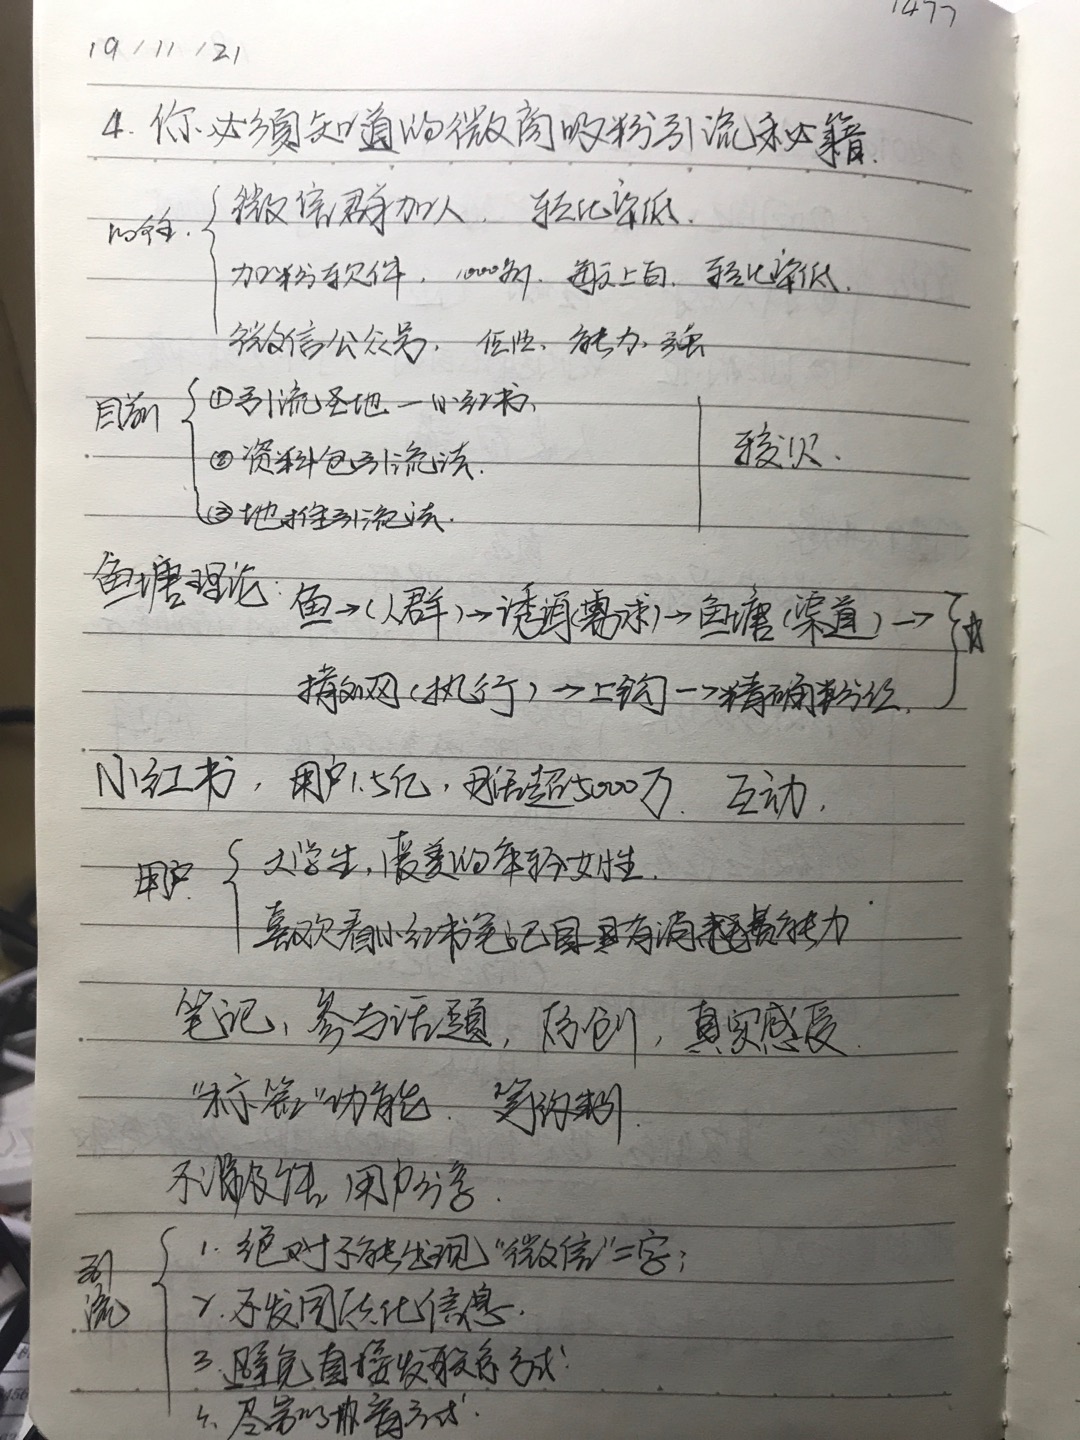 1477
19/11/21
4. 你必须知道的微商吸粉引流秘籍.
微信群加人. 转化率低.
加粉软件, 1000多/ 转化率低.
微信公众号, 能力强
目前 ①引流圣地—小红书、
②资料包引流法.
③地推引流法.
鱼塘理论: 鱼→(人群)→诱饵(需求)→鱼塘(渠道)→
捕鱼网(执行)→上钩→精确粉丝.
小红书, 用户1.5亿, 月活超5000万. 互动,
用户 大学生, 爱美的年轻女性.
喜欢看小红书笔记且具有消费能力
笔记、参与话题, 原创, 真实感受.
"标签"功能.
用户分享.
引流 1. 绝对不能出现"微信"二字;
2. 不发同质化信息.
3. 避免直接发联系方式.
4.